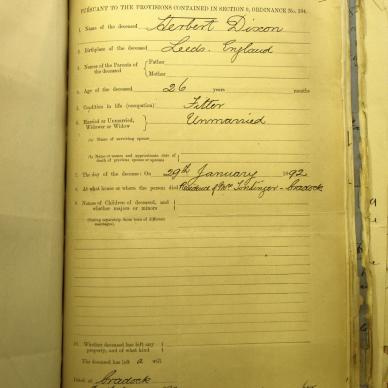 PURSUANT TO THE PROVISIONS CONTAINED IN SECTION 9, ORDINANCE No. 104.
1. Name of the deceased Herbert Dixon
2. Birthplace of the deceased Leeds. England
3. Names of the Parents of the deceased { Father
Mother
4. Age of the deceased 26 years months
5. Condition in life (occupation) Fitter
6. Married or Unmarried, Widower or Widow } Unmarried
(a) Name of surviving spouse
(b) Name or names and approximate date of death of previous spouse or spouses
7. The day of the decease: On 29th January 1892
8. At what house or where the person died Residence of Mrs - Cradock
9. Names of Children of deceased, and whether majors or minors
(Stating separately those born of different marriages).
10. Whether deceased has left any property, and of what kind
The deceased has left a will
Dated at Cradock